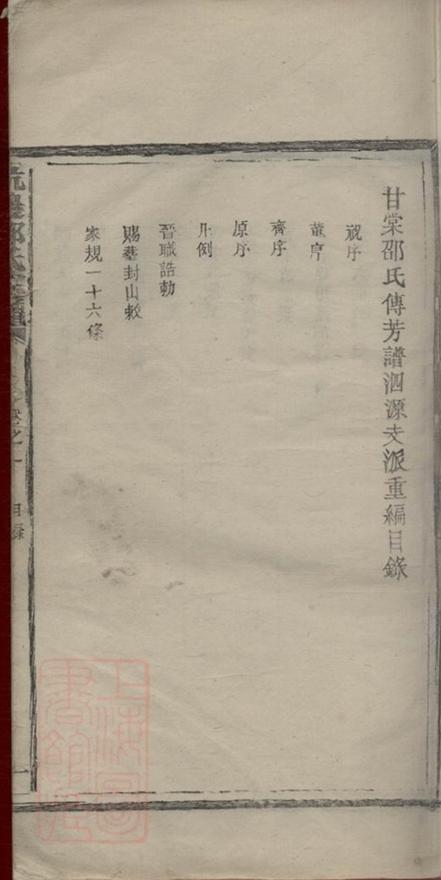 甘棠邵氏傳芳譜泗源支派重編目錄
視序
董序
齊序
原序
凡例
晉職誥勅
賜塟封山敕
家規一十六條
卷之一
目錄
一
上海圖書館藏